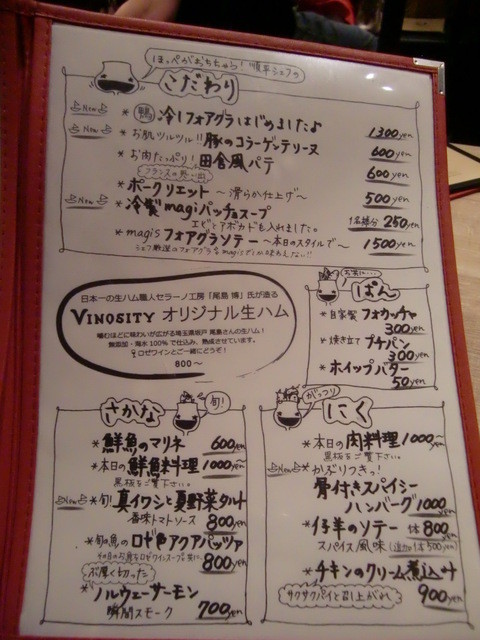 ほっぺがおちちゃう! 順平シェフの
こだわり
New
鴨 冷製フォアグラはじめましたよ 1300yen
New
* お肌ツルツル!! 豚のコラーゲンテリーヌ 600yen
* お肉たっぷり! 田舎風パテ 600yen
* ポークリエット 〜滑らか仕上げ〜 500yen
New
* 冷製magiパッチョスープ 1名様分 250yen
エビとアボカドも入れました。
* magisフォアグラソテー 〜本日のスタイルで〜 1500yen
日本一の生ハム職人セラーノ工房「尾島 博」氏が造る
VINOSITY オリジナル生ハム
噛むほどに味わいが広がる埼玉県坂戸 尾島さんの生ハム!
無添加・海水100%で仕込み、熟成させています。
ロゼワインとご一緒にどうぞ!
800〜
お供に…
ぱん
* 自家製 フォカッチャ
300yen
* 焼き立て プチパン
300yen
* ホイップバター
50yen
旬!
さかな
* 鮮魚のマリネ 600yen
* 本日の鮮魚料理 1000yen
黒板をご覧下さい。
New
* 旬! 真イワシと夏野菜タルト
香味トマトソース 800yen
* 旬の魚の ロゼ色アクアパッツァ
800yen
ぶ厚く切った
* ノルウェーサーモン
瞬間スモーク 700yen
がっつり
にく
* 本日の肉料理 1000yen
黒板をご覧下さい。
New
* かぶりつきっ!
骨付きスパイシー
ハンバーグ 1000yen
* 仔羊のソテー 1本 800yen
スパイス風味 (追加1本 500yen)
* チキンのクリーム煮込み
サクサクパイと召し上がれ 900yen